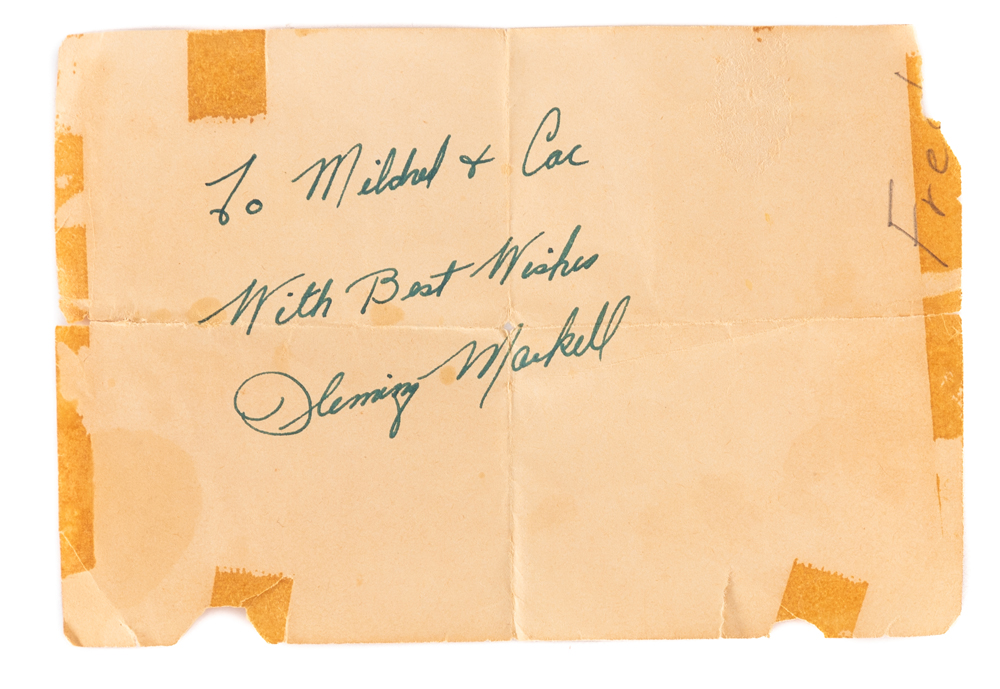 To Mildred & Cac
With Best Wishes
Fleming Markell
Fred